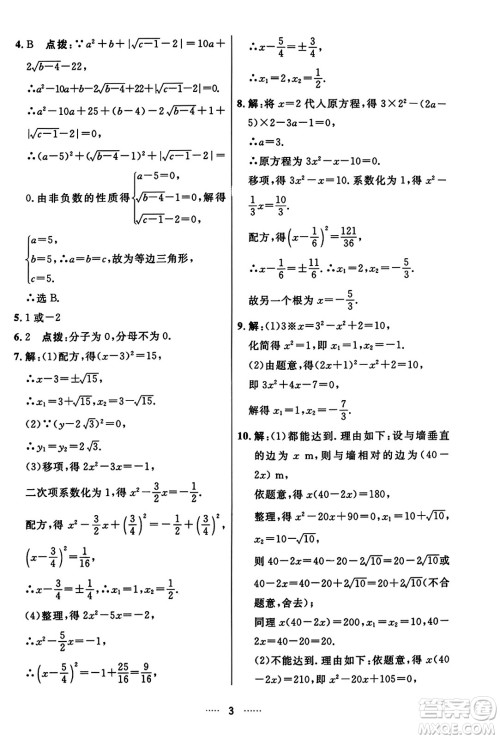 4.B 点拨:∵a²+b+|√(c-1)-2|=10a+
2√(b-4)-22,
∴a²-10a+25+(b-4)-2√(b-4)+1+
|√(c-1)-2|=0,
∴(a-5)²+(√(b-4)-1)²+|√(c-1)-2|=
0.由非负数的性质得
a=5,
b=5,
c=5,
∴a=b=c,故为等边三角形,
∴选B.
5.1或-2
6.2 点拨:分子为0,分母不为0.
7.解:(1)配方,得(x-3)²=15,
∴x-3=±√15,
∴x₁=3+√15,x₂=3-√15.
(2)∵(y-2√3)²=0,
∴y₁=y₂=2√3.
(3)移项,得2x²-3x=-1,
二次项系数化为1,得x²-3/2x=-1/2.
配方,得x²-3/2x+(3/4)²=-1/2+(3/4)²,
(x-3/4)²=1/16,
∴x-3/4=±1/4,
∴x₁=1/2,x₂=1.
(4)整理,得2x²-5x+2=0,
∴x²-5/2x=-1,
∴(x-5/4)²=-1+25/16=9/16,
∴x-5/4=±3/4,
∴x₁=2,x₂=1/2.
8.解:将x=2代入原方程,得3×2²-(2a-
5)×2-10=0,
∴a=3.
∴原方程为3x²-x-10=0.
移项,得3x²-x=10.系数化为1,得x²-
1/3x=10/3.
配方,得(x-1/6)²=121/36,
∴x-1/6=±11/6.∴x₁=2,x₂=-5/3.
故另一个根为x=-5/3.
9.解:(1)3※x=3²-x²=0,
化简得x²=9,解得x₁=3,x₂=-3.
(2)由题意,得(2x+1)²-(x-4)²=0,
即3x²+12x-15=0,
即x²+4x=5,
解得x₁=1,x₂=-
10.解:(1)都能达到.理由如下:设与墙垂直
的边为x m,则与墙相对的边为(40-
2x) m,
依题意,得x(40-2x)=180,
整理,得x²-20x+90=0,x₁=10+√10,
x₂=10-√10,
则40-2x=40-20-2√10=20-2√10或
40-2x=40-20+2√10=20+2√10(不合
题意,舍去);
同理x(40-2x)=200,x₁=x₂=10.
(2)不能达到.理由如下:依题意,得
3